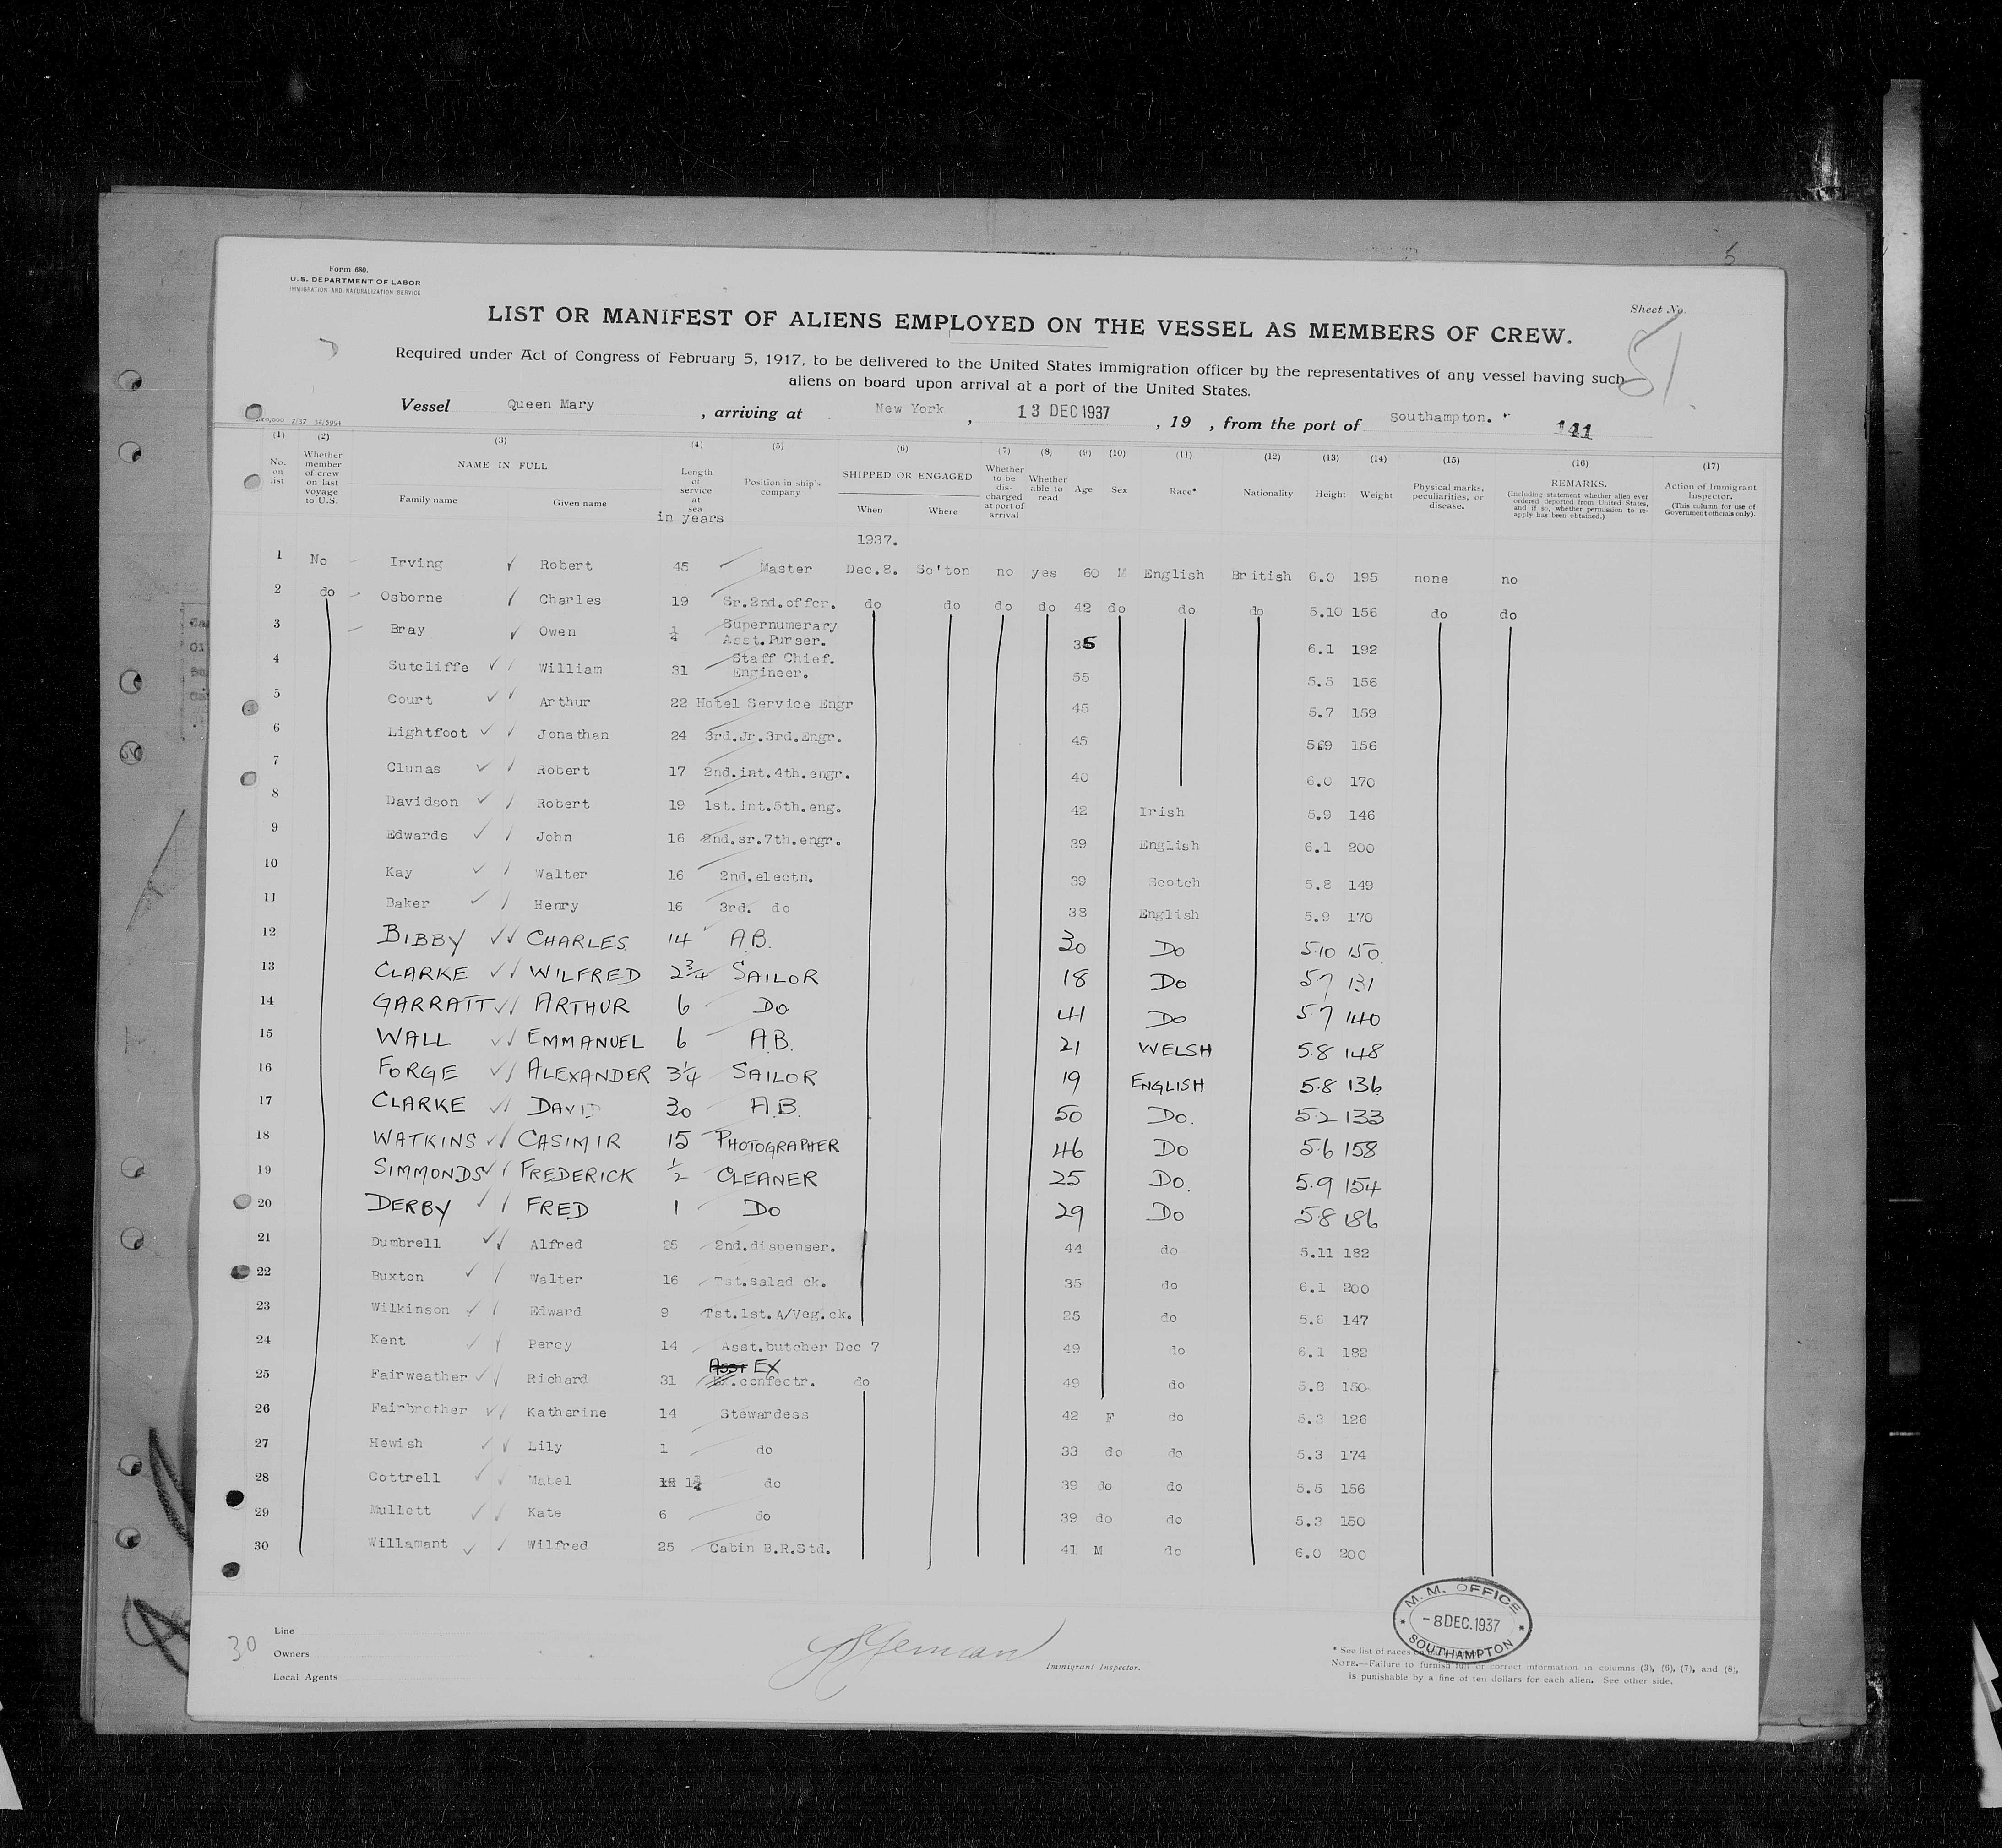 5
Form 680.
U.S. DEPARTMENT OF LABOR
IMMIGRATION AND NATURALIZATION SERVICE
Sheet No.
51
LIST OR MANIFEST OF ALIENS EMPLOYED ON THE VESSEL AS MEMBERS OF CREW.
Required under Act of Congress of February 5, 1917, to be delivered to the United States immigration officer by the representatives of any vessel having such
aliens on board upon arrival at a port of the United States.
Vessel Queen Mary , arriving at New York , 13 DEC 1937 , 19 , from the port of Southampton. 141
(1) (2) (3) (4) (5) (6) (7) (8) (9) (10) (11) (12) (13) (14) (15) (16) (17)
No. on list Whether member of crew on last voyage to U.S. NAME IN FULL Family name Given name Length of service at sea in years Position in ship's company SHIPPED OR ENGAGED When Where Whether to be discharged at port of arrival Whether able to read Age Sex Race* Nationality Height Weight Physical marks, peculiarities, or disease. REMARKS. (Including statement whether alien ever ordered deported from United States, and if so, whether permission to re-apply has been obtained.) Action of Immigrant Inspector. (This column for use of Government officials only).
1937.
1 No Irving Robert 45 Master Dec.8. So'ton no yes 60 M English British 6.0 195 none no
2 do Osborne Charles 19 Sr.2nd.offcr. do do do do 42 do do do 5.10 156 do do
3 Bray Owen 1/4 Supernumerary Asst.Purser. 35 6.1 192
4 Sutcliffe William 31 Staff Chief. Engineer. 55 5.5 156
5 Court Arthur 22 Hotel Service Engr 45 5.7 159
6 Lightfoot Jonathan 24 3rd.Jr.3rd.Engr. 45 5.9 156
7 Clunas Robert 17 2nd.int.4th.engr. 40 6.0 170
8 Davidson Robert 19 1st.int.5th.eng. 42 Irish 5.9 146
9 Edwards John 16 2nd.sr.7th.engr. 39 English 6.1 200
10 Kay Walter 16 2nd.electn. 39 Scotch 5.8 149
11 Baker Henry 16 3rd. do 38 English 5.9 170
12 BIBBY CHARLES 14 A.B. 30 DO 5.10 150
13 CLARKE WILFRED 2 3/4 SAILOR 18 DO 5.7 131
14 GARRATT ARTHUR 6 DO 41 DO 5.7 140
15 WALL EMMANUEL 6 A.B. 21 WELSH 5.8 148
16 FORGE ALEXANDER 3 1/4 SAILOR 19 ENGLISH 5.8 136
17 CLARKE DAVID 30 A.B. 50 DO. 5.2 133
18 WATKINS CASIMIR 15 PHOTOGRAPHER 46 DO 5.6 158
19 SIMMONDS FREDERICK 1/2 CLEANER 25 DO. 5.9 154
20 DERBY FRED 1 DO 29 DO 5.8 186
21 Dumbrell Alfred 25 2nd.dispenser. 44 do 5.11 182
22 Buxton Walter 16 Tst.salad ck. 35 do 6.1 200
23 Wilkinson Edward 9 Tst.1st.A/Veg.ck. 25 do 5.6 147
24 Kent Percy 14 Asst.butcher Dec 7 49 do 6.1 182
25 Fairweather Richard 31 Asst EX .confectr. do 49 do 5.8 150
26 Fairbrother Katherine 14 Stewardess 42 F do 5.3 126
27 Hewish Lily 1 do 33 do do 5.3 174
28 Cottrell Mabel do 39 do do 5.5 156
29 Mullett Kate 6 do 39 do do 5.3 150
30 Willamant Wilfred 25 Cabin B.R.Std. 41 M do 6.0 200
M. M. OFFICE
-8 DEC.1937
SOUTHAMPTON
30
Line
Owners
Local Agents
Immigrant Inspector.
* See list of races
NOTE.—Failure to furnish full or correct information in columns (3), (6), (7), and (8),
is punishable by a fine of ten dollars for each alien. See other side.